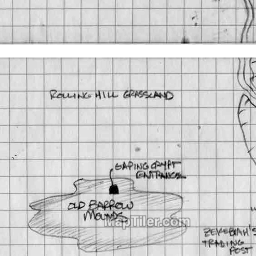 ROLLING HILL GRASSLAND
GAPING CRYPT
ENTRANCE
OLD BARROW
MOUNDS
MapTiler.com
TRADING
POST